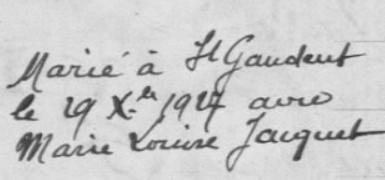 Marié à St Gaudent
le 29 X.bre 1927 avec
Marie Louise Jacquet